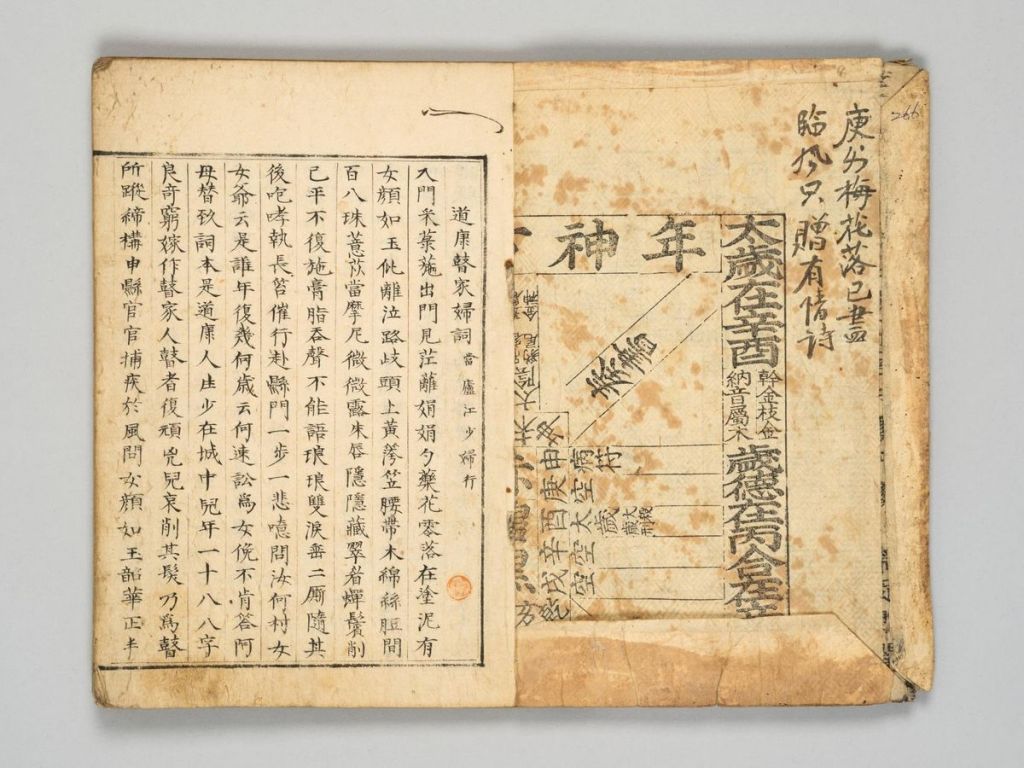 266
梅花落已盡
臨風只贈有情詩
太歲在辛酉
幹金枝金
納音屬木
歲德在丙合在辛
年神
病符
申
庚空
酉太歲
辛空
戌空
道康瞽家婦詞 當廬江少婦行
入門采葉葹出門見茳蘺娟娟勺藥花零落在塗泥有
女顔如玉仳離泣路歧頭上黃
笠腰帶木綿絲脰間
百八珠薏苡當摩尼微微露朱唇隱隱藏翠眉蟬鬢削
已平不復施膏脂呑聲不能語琅琅雙淚垂二厮隨其
後咆哮執長笞催行赴縣門一步一悲噫問汝何村女
女爺云是誰年復幾何歲云何速訟爲女俛不肯答阿
母替致詞本是道康人生少在城中兒年一十八八字
良奇窮嫁作瞽家人瞽者復頑兇兒哀削其髮乃爲瞽
所蹤締構申縣官官捕疾於風問女顔如玉韶華正丰